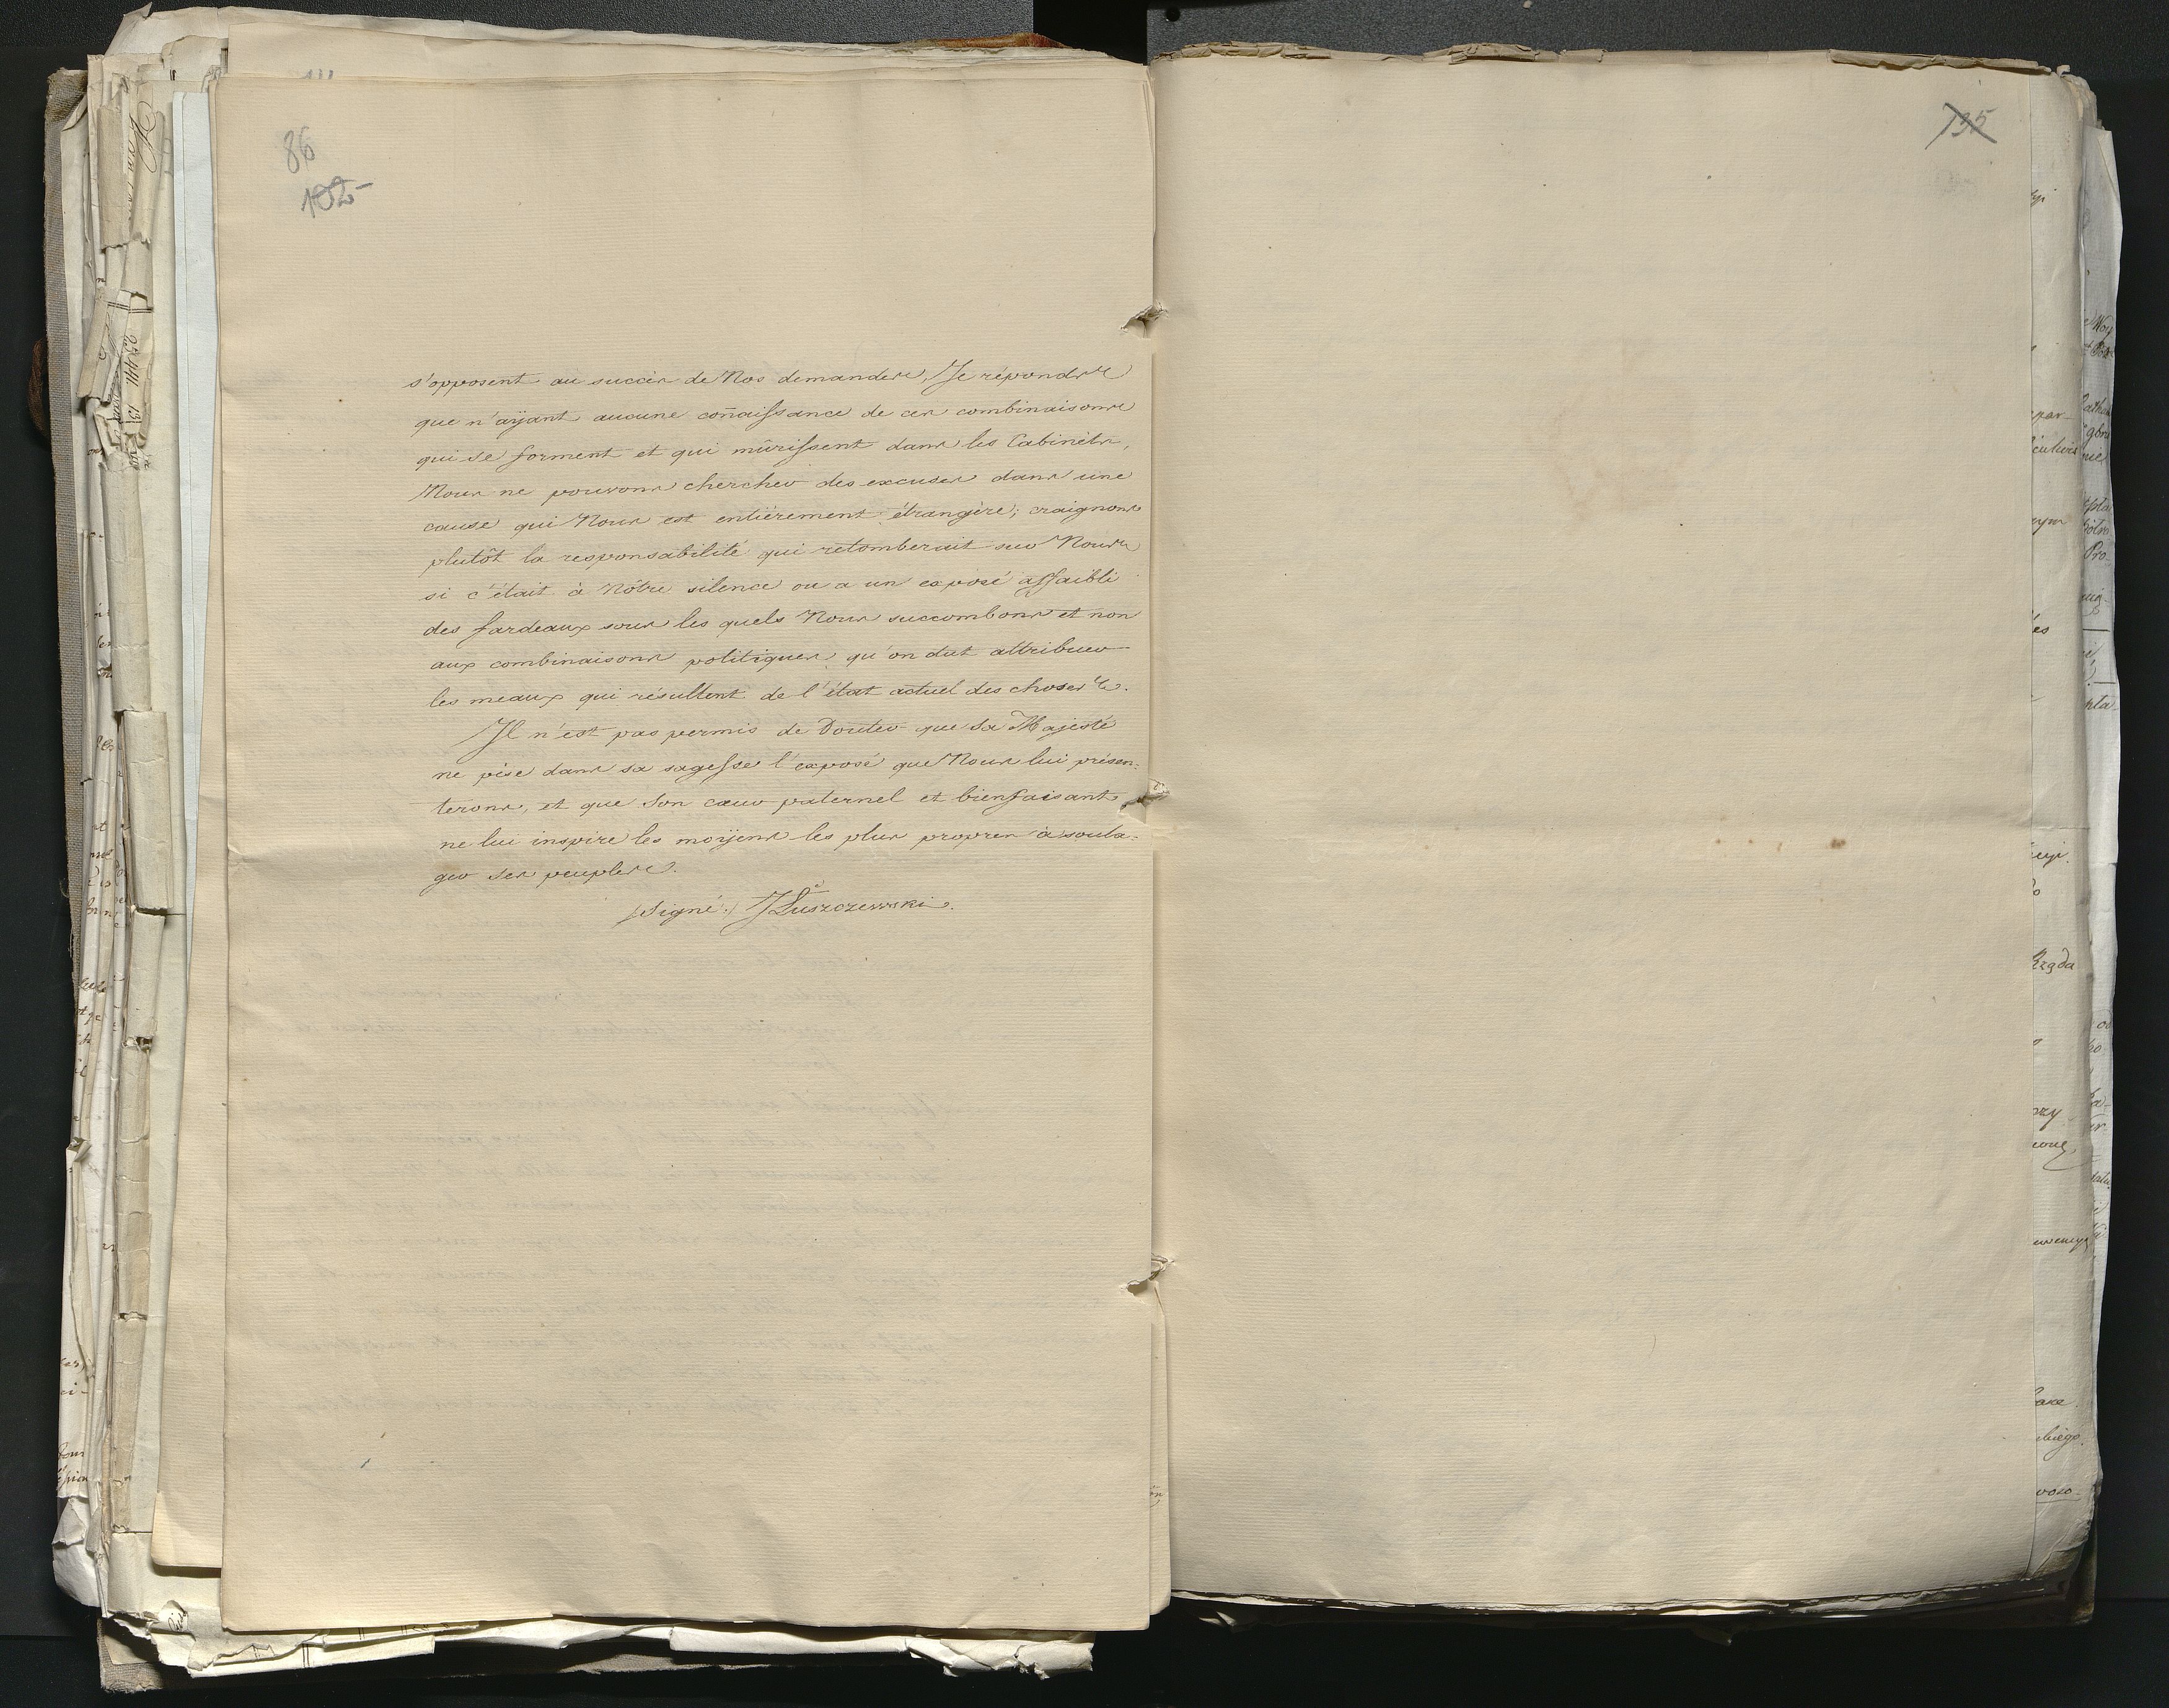 86
102
s'opposent au succès de Nos demandes, Je répondrè
que n'aÿant aucune coñaissance de ces combinaisons
qui se forment et qui mûrissent dans les Cabinèts,
Nous ne pouvons chercher des excuses dans une
cause qui Nous est entiérement étrangère; craignons
plutôt la responsabilité qui retomberait sur Nous
si c'était à Nôtre silence ou a un exposé affaibli
des fardeaux sous les quels Nous succombons et non
aux combinaisons politiques qu'on dut attribuer
les meaux qui résultent de l'état actuel des choses.
Il n'est pas permis de Douter que Sa Majesté
ne pèse dans sa sagesse l'exposé que Nous lui présen-
terons, et que Son cœur paternel et bienfaisant
ne lui inspire les moÿens les plus propres à soula-
ger ses peuples.
/Signé:/ J Łuszczewski.
135